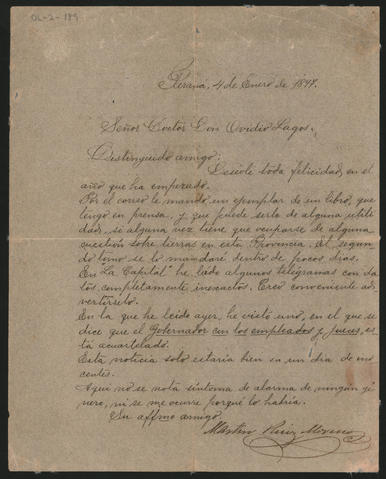 OL-2-189
Paraná, 4 de Enero de 1897.
Señor Doctor Don Ovidio Lagos.
Distinguido amigo:
Deséole toda felicidad, en el
año que ha empezado.
Por el correo le mando, un ejemplar de un libro, que
tengo en prensa, y que puede serle de alguna utili
dad, si alguna vez tiene que ocuparse de alguna
cuestión sobre tierras en esta Provincia. El segun
do tomo se lo mandaré dentro de pocos dias.
En La Capital he leido algunos telegramas con da
tos completamente inexactos. Creo conveniente ad
vertírselo.
En la que he leido ayer, he visto uno, en el que se
dice que el Gobernador con los empleados y Jueces, es
tá acuartelado.
Esta noticia solo estaria bien en un dia de ino
centes.
Aqui no se nota sintoma de alarma de ningún gé
nero, ni se me ocurre porqué lo habria.
Su affmo amigo.
Martin Ruiz Moreno